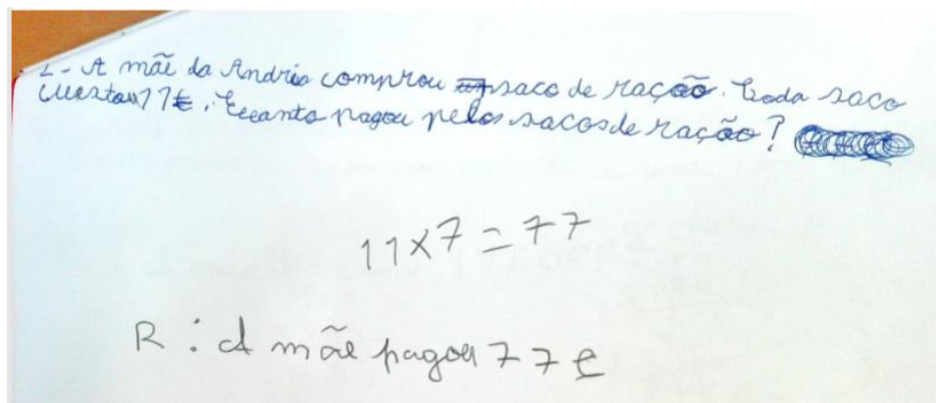 - A mãe da Andreia comprou saco de ração. Cada saco
custou 11€. Quanto pagou pelos sacos de ração?
11x7=77
R: A mãe pagou 77€